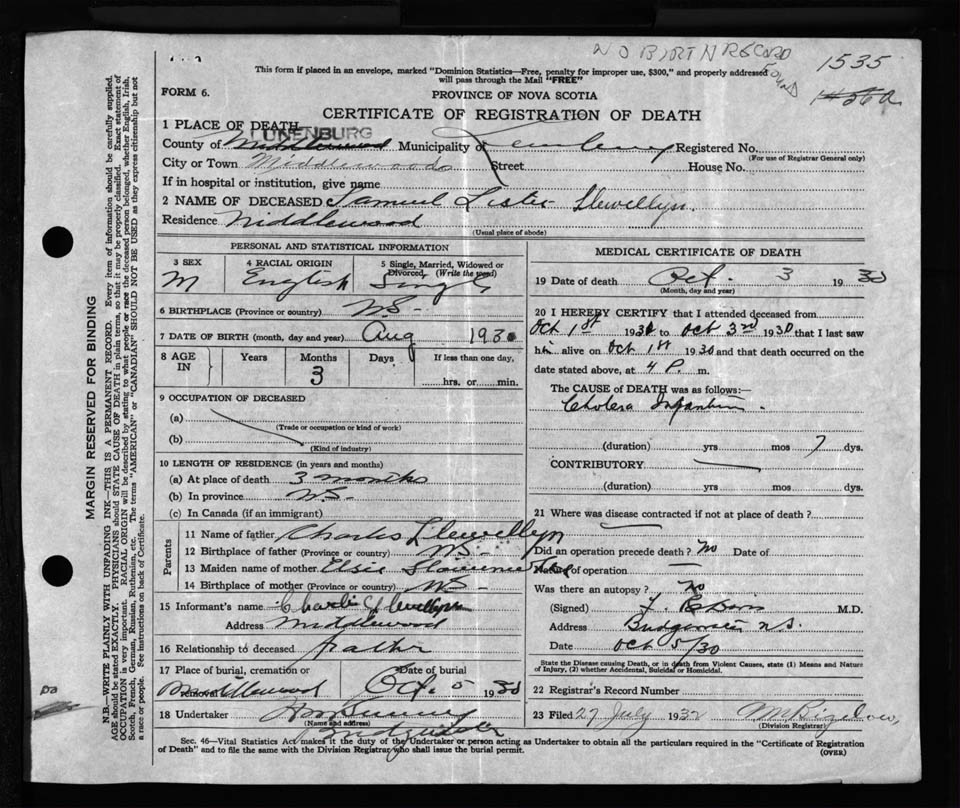 NO BIRTH RECORD
FOUND
1535
This form if placed in an envelope, marked "Dominion Statistics—Free, penalty for improper use, $300," and properly addressed
will pass through the Mail "FREE"
FORM 6.
PROVINCE OF NOVA SCOTIA
CERTIFICATE OF REGISTRATION OF DEATH
1 PLACE OF DEATH—
LUNENBURG
County of Middlewood Municipality of Registered No.
(For use of Registrar General only)
City or Town Middlewoods Street House No.
If in hospital or institution, give name
2 NAME OF DECEASED Samuel Lester Llewellyn
Residence Middlewood
(Usual place of abode)
PERSONAL AND STATISTICAL INFORMATION
3 SEX
M
4 RACIAL ORIGIN
English
5 Single, Married, Widowed or
Divorced, (Write the word)
Single
6 BIRTHPLACE (Province or country) N.S.
7 DATE OF BIRTH (month, day and year) Aug 1930
8 AGE IN
Years
Months
3
Days
If less than one day,
hrs. or min.
9 OCCUPATION OF DECEASED
(a)
(Trade or occupation or kind of work)
(b)
(Kind of industry)
10 LENGTH OF RESIDENCE (in years and months)
(a) At place of death 3 months
(b) In province N.S.
(c) In Canada (if an immigrant)
Parents
11 Name of father Charles Llewellyn
12 Birthplace of father (Province or country) N.S.
13 Maiden name of mother Elsie
14 Birthplace of mother (Province or country) N.S.
15 Informant's name Charlie Llewellyn
Address Middlewood
16 Relationship to deceased father
17 Place of burial, cremation or
removal
Middlewood
Date of burial
Oct. 5 1930
18 Undertaker
(Name and address)
MEDICAL CERTIFICATE OF DEATH
19 Date of death Oct. 3 1930
(Month, day and year)
20 I HEREBY CERTIFY that I attended deceased from
Oct 1st 1930 to Oct 3rd 1930 that I last saw
him alive on Oct 1st 1930 and that death occurred on the
date stated above, at 4 P. m.
The CAUSE of DEATH was as follows:—
Cholera Infantum.
(duration) yrs mos 7 dys.
CONTRIBUTORY
(duration) yrs mos dys.
21 Where was disease contracted if not at place of death?
Did an operation precede death? No Date of
Nature of operation
Was there an autopsy? No
(Signed) M.D.
Address Bridgewater N.S.
Date Oct 5/30
State the Disease causing Death, or in death from Violent Causes, state (1) Means and Nature
of Injury, (2) whether Accidental, Suicidal or Homicidal.
22 Registrar's Record Number
23 Filed 27 July 1932
(Division Registrar)
Sec. 46—Vital Statistics Act makes it the duty of the Undertaker or person acting as Undertaker to obtain all the particulars required in the "Certificate of Registration
of Death" and to file the same with the Division Registrar who shall issue the burial permit.
(OVER)
MARGIN RESERVED FOR BINDING
N.B.—WRITE PLAINLY WITH UNFADING INK—THIS IS A PERMANENT RECORD. Every item of information should be carefully supplied.
AGE should be stated EXACTLY. PHYSICIANS should STATE CAUSE OF DEATH in plain terms, so that it may be properly classified. Exact statement of
OCCUPATION is very important. RACIAL ORIGIN will be described by stating to what people or race the deceased person belonged, whether English, Irish,
Scotch, French, German, Russian, Ruthenian, etc. The terms "AMERICAN" or "CANADIAN" SHOULD NOT BE USED as they express citizenship but not
a race or people. See instructions on back of Certificate.